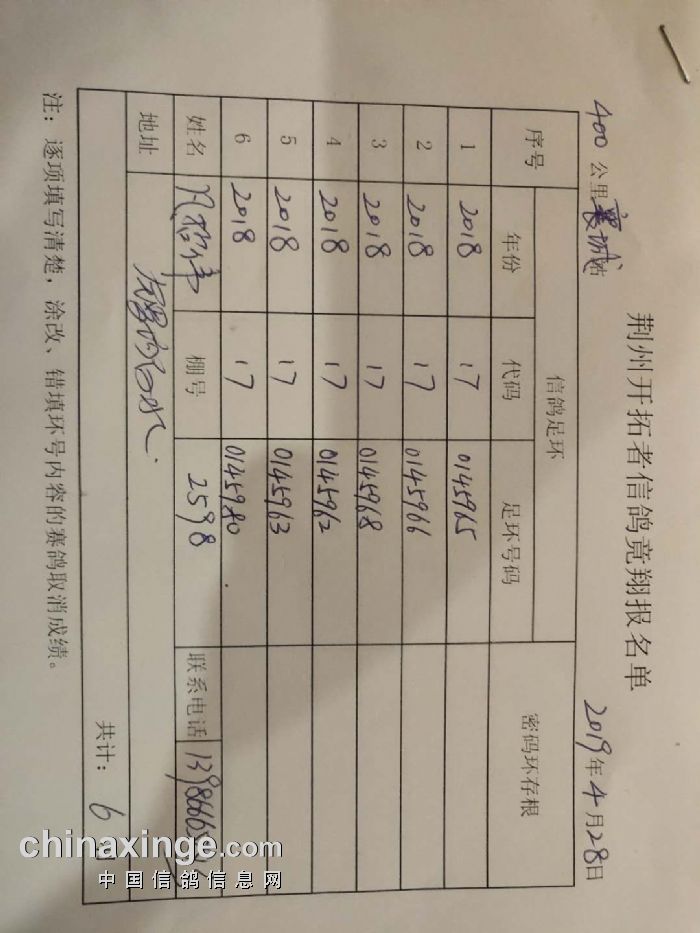 荆州开拓者信鸽竞翔报名单
400 公里襄城站 2019年4月28日
序号 信鸽足环 密码环存根
年份 代码 足环号码
1 2018 17 0145965
2 2018 17 0145966
3 2018 17 0145968
4 2018 17 0145962
5 2018 17 0145963
6 2018 17 0145980
姓名 棚号 2598 联系电话
地址
共计: 6
注: 逐项填写清楚，涂改、错填环号内容的赛鸽取消成绩。
chinaxinge.com
中国信鸽信息网